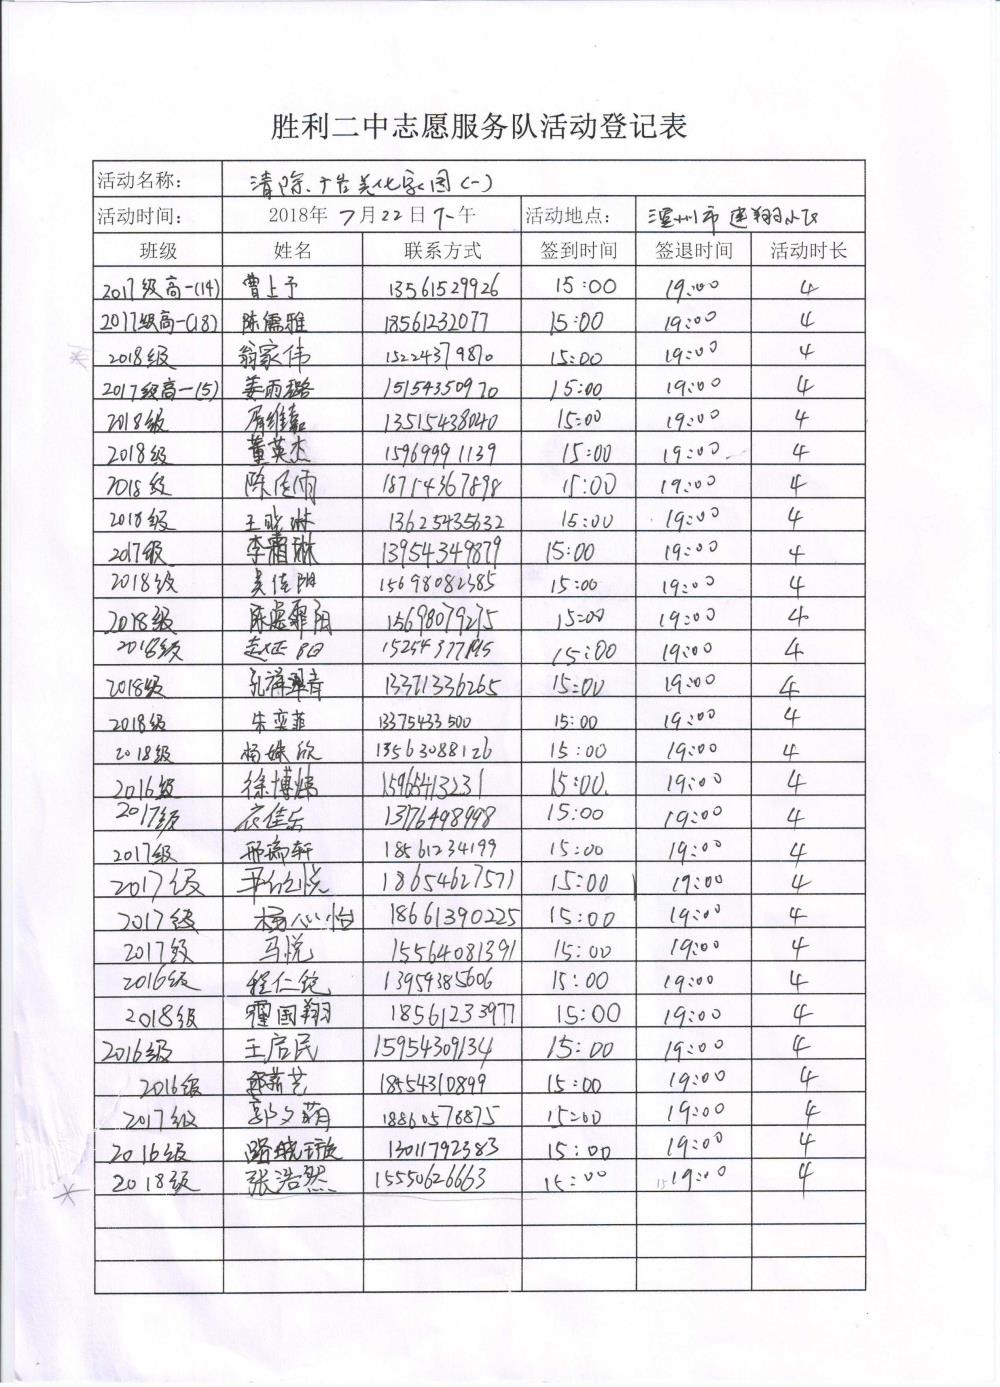 胜利二中志愿服务队活动登记表
活动名称: 清除广告美化家园(一)
活动时间: 2018年7月22日下午 活动地点: 建翔小区
班级 姓名 联系方式 签到时间 签退时间 活动时长
2017级高一(14) 曹上予 13561529926 15:00 19:00 4
2017级高一(18) 陈儒雅 18561232077 15:00 19:00 4
2018级 翁家伟 15224379870 15:00 19:00 4
2017级高一(5) 姜雨璐 15154350970 15:00 19:00 4
2018级 13515438040 15:00 19:00 4
2018级 董英杰 15969991139 15:00 19:00 4
2018级 陈佳雨 18714367898 15:00 19:00 4
2018级 王晓琳 13625435632 15:00 19:00 4
2017级 李霜琳 13954349879 15:00 19:00 4
2018级 吴佳阳 15698082385 15:00 19:00 4
2018级 15698079275 15:00 19:00 4
2018级 15:00 19:00 4
2018级 13371336265 15:00 19:00 4
2018级 朱奕菲 13375433500 15:00 19:00 4
2018级 杨姝欣 13563088126 15:00 19:00 4
2016级 15965413231 15:00 19:00 4
2017级 衣佳乐 15:00 19:00 4
2017级 邢瀚轩 18561234199 15:00 19:00 4
2017级 18654627571 15:00 19:00 4
2017级 杨心怡 18661390225 15:00 19:00 4
2017级 马悦 15564081391 15:00 19:00 4
2016级 13959385606 15:00 19:00 4
2018级 霍国翔 18561233977 15:00 19:00 4
2016级 王居民 15954309134 15:00 19:00 4
2016级 18554310899 15:00 19:00 4
2017级 郭夕萌 18860576875 15:00 19:00 4
2016级 路晓璇 13011792383 15:00 19:00 4
2018级 张浩然 15550626663 15:00 19:00 4